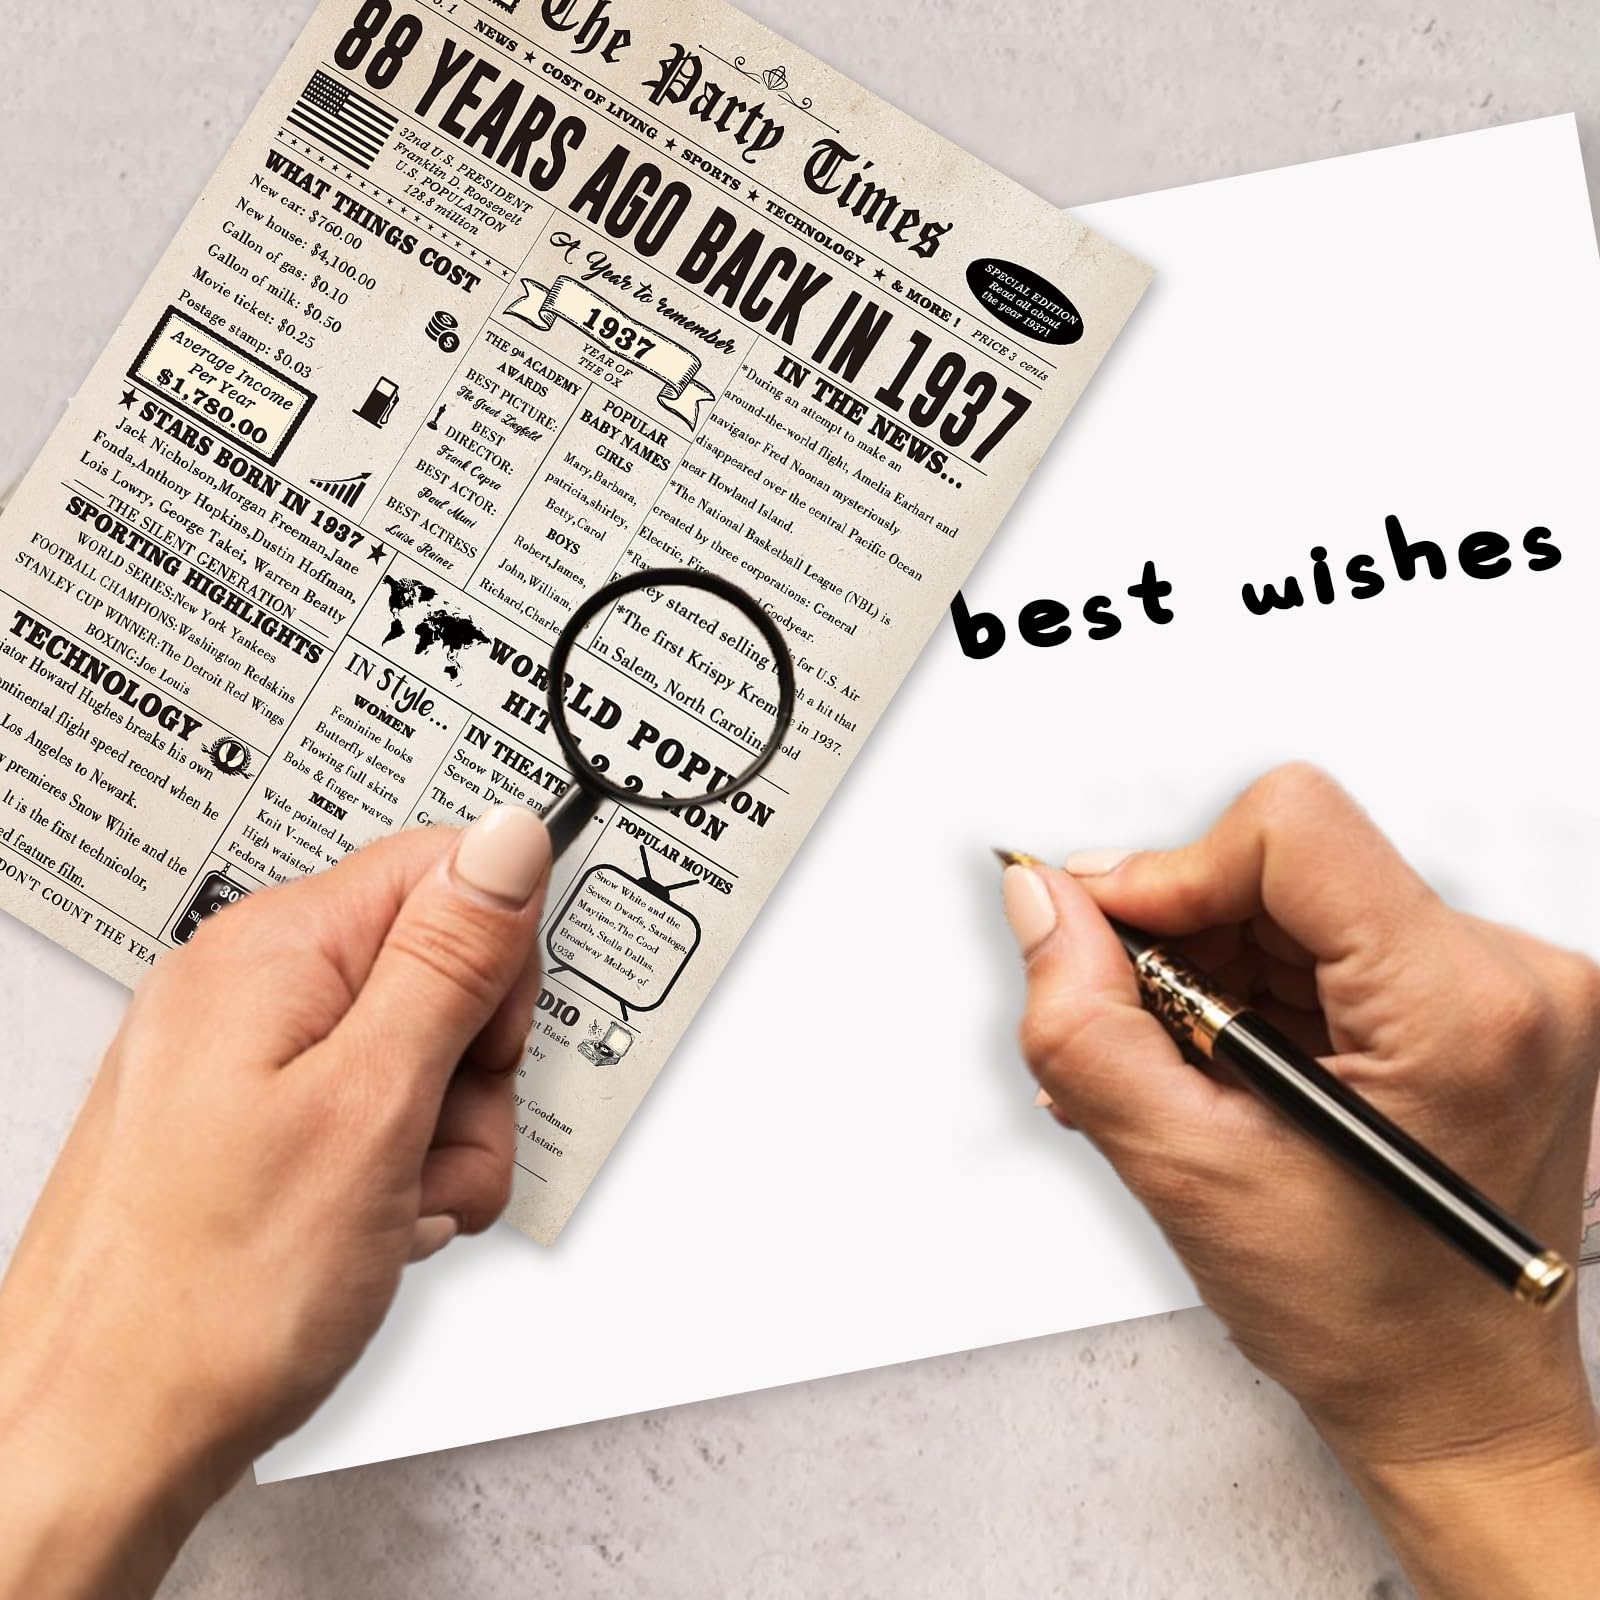 The Party Times
NEWS ★ COST OF LIVING ★ SPORTS ★ TECHNOLOGY ★ & MORE !
PRICE 3 cents
88 YEARS AGO BACK IN 1937
SPECIAL EDITION
Read all about
the year 1937!
32nd U.S. PRESIDENT
Franklin D. Roosevelt
U.S. POPULATION
128.8 million
WHAT THINGS COST
New car: $760.00
New house: $4,100.00
Gallon of gas: $0.10
Gallon of milk: $0.50
Movie ticket: $0.25
Postage stamp: $0.03
Average Income
Per Year
$1,780.00
★ STARS BORN IN 1937 ★
Jack Nicholson,Morgan Freeman,Jane
Fonda,Anthony Hopkins,Dustin Hoffman,
Lois Lowry, George Takei, Warren Beatty
THE SILENT GENERATION
SPORTING HIGHLIGHTS
WORLD SERIES:New York Yankees
FOOTBALL CHAMPIONS:Washington Redskins
STANLEY CUP WINNER:The Detroit Red Wings
BOXING:Joe Louis
TECHNOLOGY
Howard Hughes breaks his own
flight speed record when he
Los Angeles to Newark.
premieres Snow White and the
It is the first technicolor,
feature film.
DON'T COUNT THE
A Year to remember
1937
YEAR OF
THE OX
THE 9th ACADEMY
AWARDS
BEST PICTURE:
The Great Ziegfeld
BEST
DIRECTOR:
Frank Capra
BEST ACTOR:
Paul Muni
BEST ACTRESS
Luise Rainer
POPULAR
BABY NAMES
GIRLS
Mary,Barbara,
patricia,shirley,
Betty,Carol
BOYS
Robert,James,
John,William,
Richard,Charles
IN THE NEWS...
*During an attempt to make an
around-the-world flight, Amelia Earhart and
navigator Fred Noonan mysteriously
disappeared over the central Pacific Ocean
near Howland Island.
*The National Basketball League (NBL) is
created by three corporations: General
Electric,
Goodyear.
for U.S. Air
started selling
a hit that
*The first Krispy
in 1937.
in Salem, North Carolina
sold
WORLD
HIT
IN Style...
WOMEN
Feminine looks
Butterfly sleeves
Flowing full skirts
Bobs & finger waves
MEN
Wide pointed
Knit V-neck
High waisted
Fedora
IN
Snow White and
Seven
The
POPULAR MOVIES
Snow White and the
Seven Dwarfs, Saratoga,
Maytime,The Cood
Earth, Stella Dallas,
Broadway Melody of
1938
Basie
Goodman
Astaire
best wishes